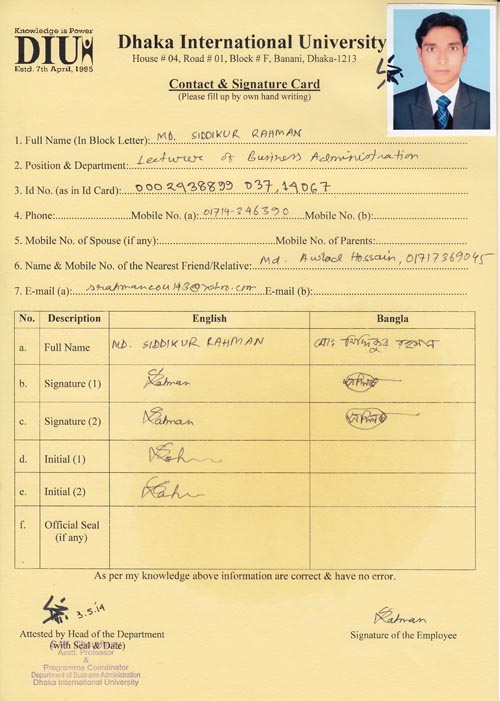 Knowledge is Power
DIU
Estd. 7th April, 1995
Dhaka International University
House # 04, Road # 01, Block # F, Banani, Dhaka-1213
Contact & Signature Card
(Please fill up by own hand writing)
1. Full Name (In Block Letter): MD. SIDDIKUR RAHMAN
2. Position & Department: Lecturer of Business Administration
3. Id No. (as in Id Card): 0002938899 037,14067
4. Phone: Mobile No. (a): 01714-246390 Mobile No. (b):
5. Mobile No. of Spouse (if any): Mobile No. of Parents:
6. Name & Mobile No. of the Nearest Friend/Relative: Md. Awlad Hossain, 01717369045
7. E-mail (a): E-mail (b):
No. Description English Bangla
a. Full Name MD. SIDDIKUR RAHMAN মোঃ সিদ্দিকুর রহমান
b. Signature (1) Rahman
c. Signature (2) Rahman
d. Initial (1)
e. Initial (2)
f. Official Seal
(if any)
As per my knowledge above information are correct & have no error.
3.5.14
Rahman
Attested by Head of the Department
Signature of the Employee
(with Seal & Date)
Asstt. Professor
&
Programme Coordinator
Department of Business Administration
Dhaka International University